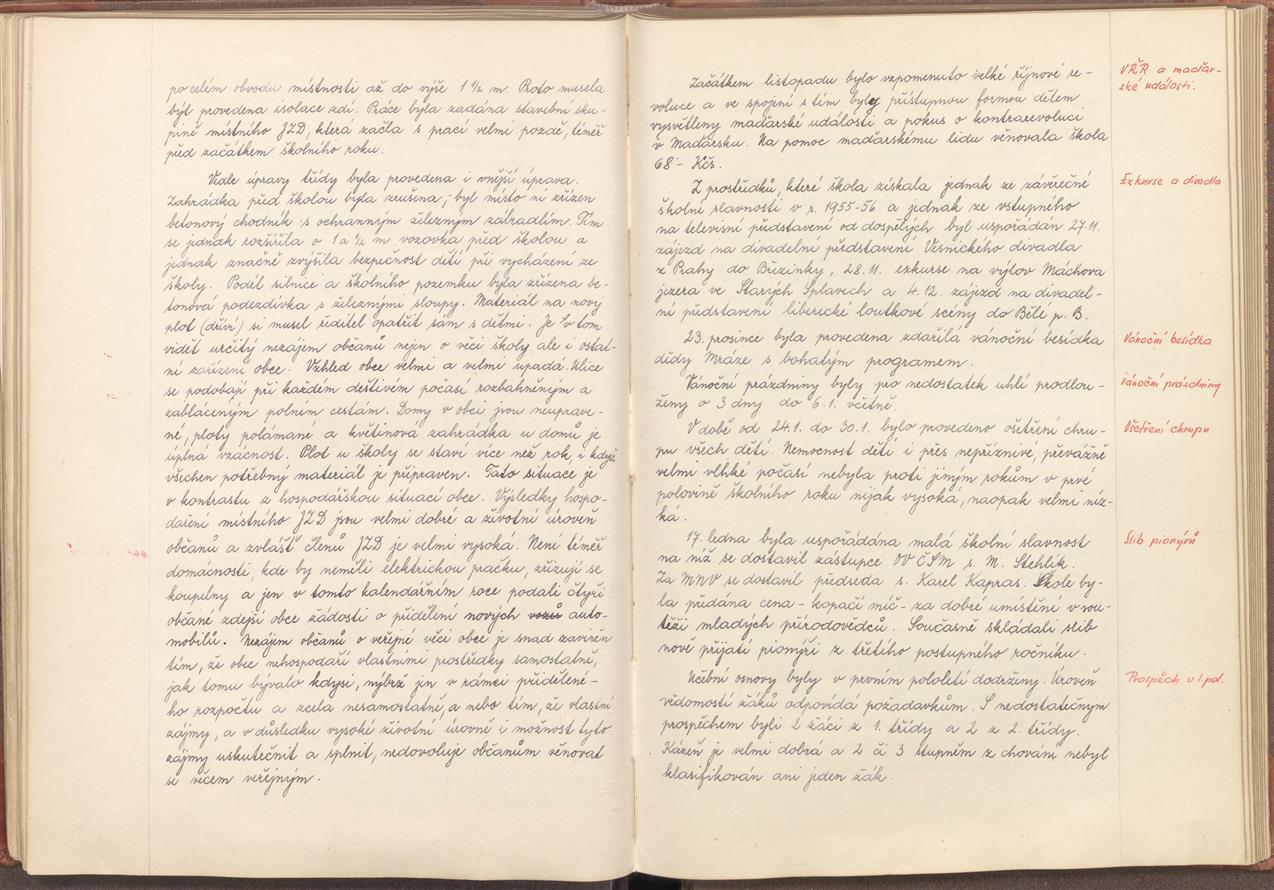 po celém obvodu místnosti až do výše 1 1/2 m. Proto musela
být provedena isolace zdí. Práce byla zadána stavební sku-
pině místního JZD, která začla s prací velmi pozdě, téměř
před začátkem školního roku.
Vedle úpravy třídy byla provedena i vnější úprava.
Zahrádka před školou byla zrušena; byl místo ní zřízen
betonový chodník s ochranným železným zábradlím. Tím
se jednak rozšířila o 1 a 1/2 m vozovka před školou a
jednak značně zvýšila bezpečnost dětí při vycházení ze
školy. Podél silnice a školního pozemku byla zřízena be-
tonová podezdívka s železnými sloupy. Materiál na nový
plot (dříví) si musel ředitel opatřit sám s dětmi. Je v tom
vidět určitý nezájem občanů nejen o věci školy, ale i ostat-
ní zařízení obce. Vzhled obce velmi a velmi upadá. Ulice
se podobají při každém deštivém počasí rozbahněným a
zabláceným polním cestám. Domy v obci jsou neuprave-
né, ploty polámané a květinová zahrádka u domů je
úplná vzácnost. Plot u školy se staví více než rok, i když
všechen potřebný materiál je připraven. Tato situace je
v kontrastu z hospodářskou situací obce. Výsledky hospo-
daření místního JZD jsou velmi dobré a životní úroveň
občanů a zvlášť členů JZD je velmi vysoká. Není téměř
domácnosti, kde by neměli elektrickou pračku, zřizují se
koupelny a jen v tomto kalendářním roce podali čtyři
občané zdejší obce žádosti o přidělení nových vozů auto-
mobilů. Nezájem občanů o veřejné věci obce je snad zaviněn
tím, že obec nehospodaří vlastními prostředky samostatně,
jak tomu bývalo kdysi, nýbrž jen v rámci přidělené-
ho rozpočtu a zcela nesamostatně, a nebo tím, že vlastní
zájmy, a v důsledku vysoké životní úrovně i možnost tyto
zájmy uskutečnit a splnit, nedovoluje občanům věnovat
se věcem veřejným.
Začátkem listopadu bylo vzpomenuto velké říjnové re-
voluce a ve spojení s tím byly přístupnou formou dětem
vysvětleny maďarské události a pokus o kontrarevoluci
v Maďarsku. Na pomoc maďarskému lidu věnovala škola
68.- Kčs.
VŘR a maďar-
ské události.
Z prostředků, které škola získala jednak ze závěrečné
školní slavnosti v r. 1955-56 a jednak ze vstupného
na televisní představení od dospělých byl uspořádán 27.11.
zájezd na divadelní představení Vesnického divadla
z Prahy do Březinky, 28.11. exkurse na výlov Máchova
jezera ve Starých Splavech a 4.12. zájezd na divadel-
ní představení liberecké loutkové scény do Bělé p. B.
Exkurse a divadla
23. prosince byla provedena zdařilá vánoční besídka
dědy Mráze s bohatým programem.
Vánoční besídka
Vánoční prázdniny byly pro nedostatek uhlí prodlou-
ženy o 3 dny do 6.1. včetně.
Vánoční prázdniny
V době od 24.1. do 30.1. bylo provedeno ošetření chru-
pu všech dětí. Nemocnost dětí i přes nepříznivé, převážně
velmi vlhké počasí nebyla proti jiným rokům v prvé
polovině školního roku nijak vysoká, naopak velmi níz-
ká.
Ošetření chrupu
17. ledna byla uspořádána malá školní slavnost
na níž se dostavil zástupce OV ČSM s. M. Stehlík.
Za MNV se dostavil předseda s. Karel Kapras. Škole by-
la předána cena - kopací míč - za dobré umístění v sou-
těži mladých přírodovědců. Současně skládali slib
nově přijatí pionýři z třetího postupného ročníku.
Slib pionýrů
Učební osnovy byly v prvním pololetí dodrženy. Úroveň
vědomostí žáků odpovídá požadavkům. S nedostatečným
prospěchem byli 2 žáci z 1. třídy a 2 z 2. třídy.
Kázeň je velmi dobrá a 2 či 3 stupněm z chování nebyl
klasifikován ani jeden žák.
Prospěch v 1. pol.